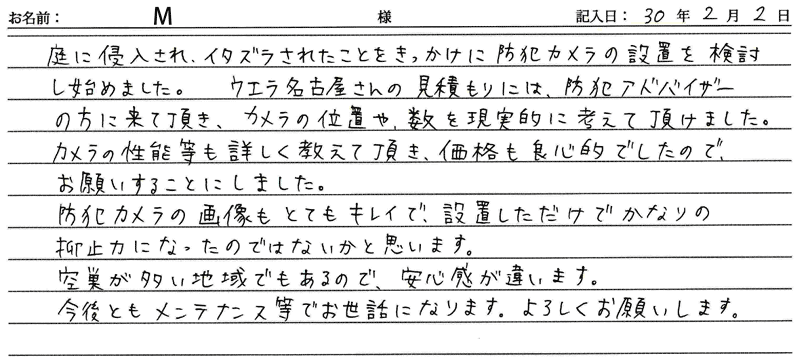 お名前： M 様 記入日： 30 年 2 月 2 日
庭に侵入され、イタズラされたことをきっかけに防犯カメラの設置を検討
し始めました。 ウエラ名古屋さんの見積もりには、防犯アドバイザー
の方に来て頂き、カメラの位置や、数を現実的に考えて頂けました。
カメラの性能等も詳しく教えて頂き、価格も良心的でしたので、
お願いすることにしました。
防犯カメラの画像もとてもキレイで、設置しただけでかなりの
抑止力になったのではないかと思います。
空巣が多い地域でもあるので、安心感が違います。
今後ともメンテナンス等でお世話になります。よろしくお願いします。